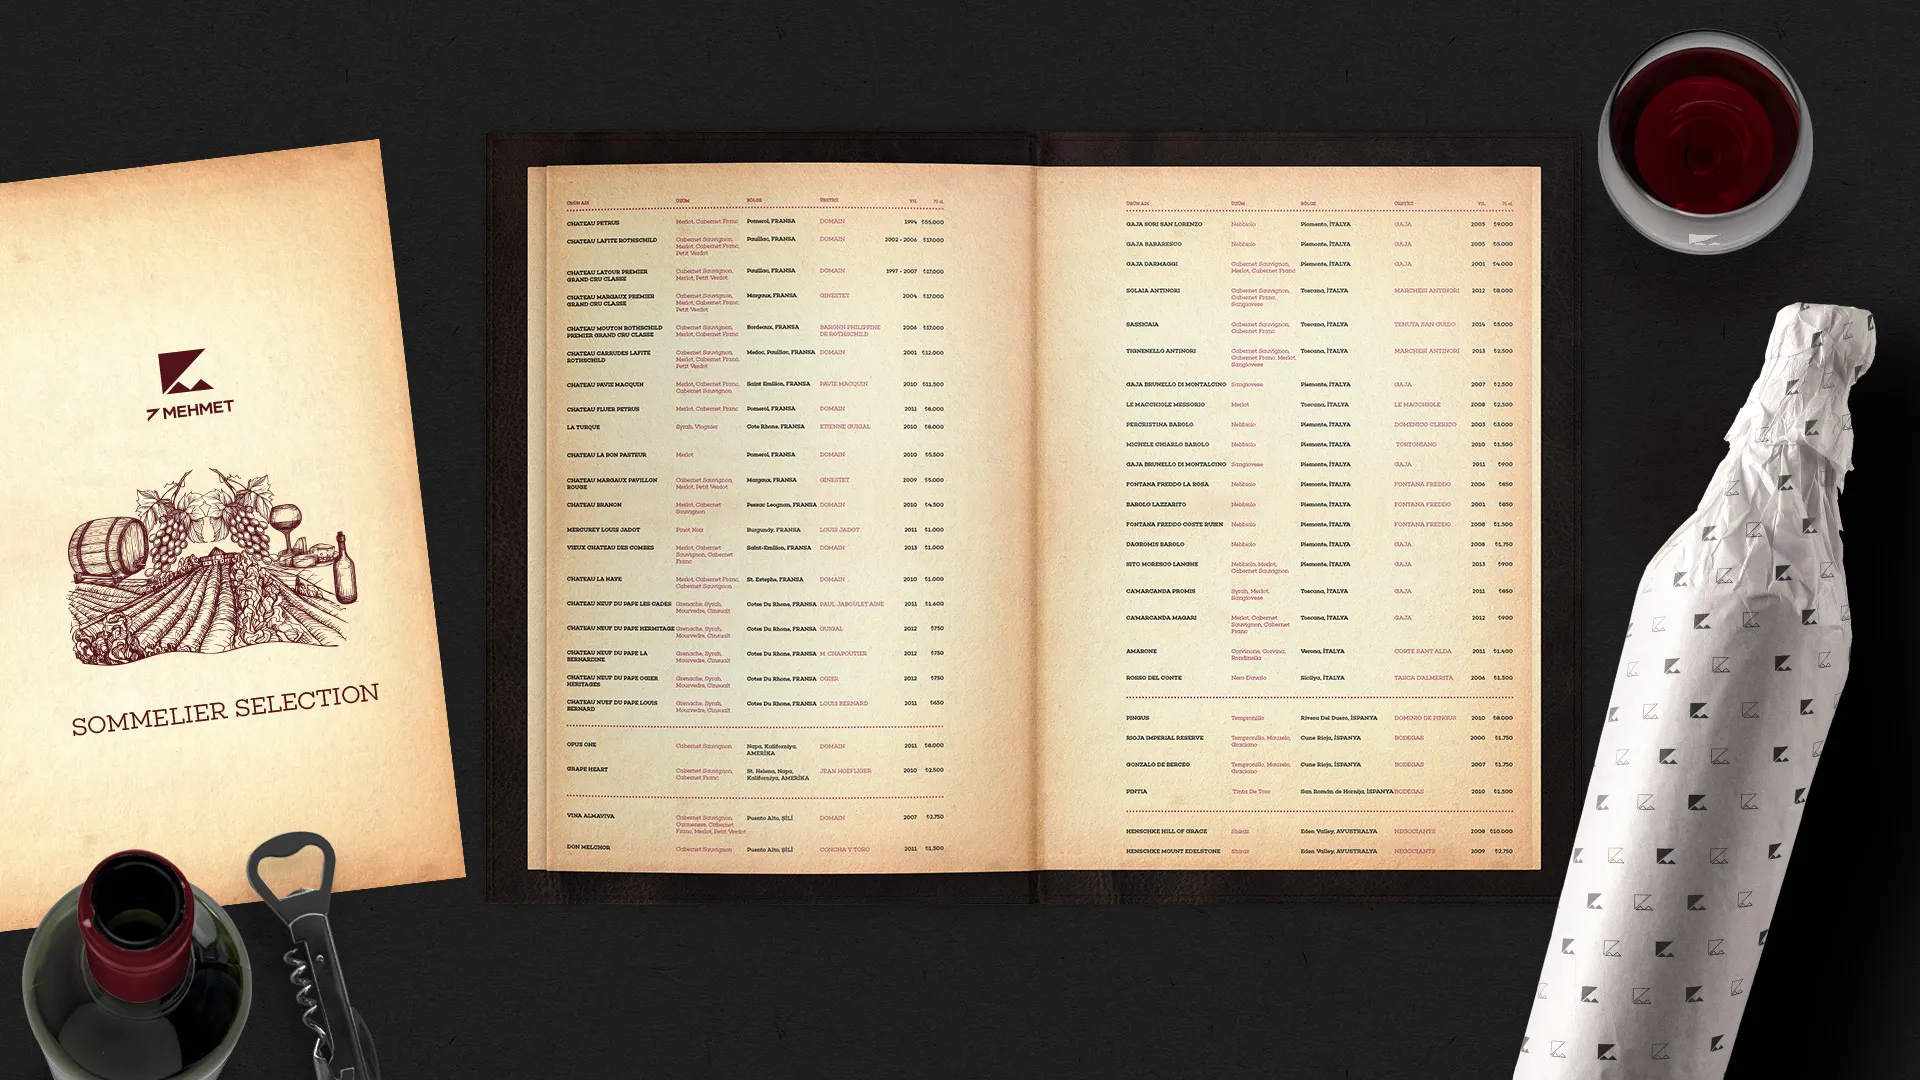 7 MEHMET
SOMMELIER SELECTION
ÜRÜN ADI ÜZÜM BÖLGE ÜRETİCİ YIL 75 cl.
CHATEAU PETRUS Merlot, Cabernet Franc Pomerol, FRANSA DOMAIN 1994 ₺55.000
CHATEAU LAFITE ROTHSCHILD Cabernet Sauvignon, Pauillac, FRANSA DOMAIN 2002 - 2006 ₺17.000
Merlot, Cabernet Franc,
Petit Verdot
CHATEAU LATOUR PREMIER Cabernet Sauvignon, Pauillac, FRANSA DOMAIN 1997 - 2007 ₺17.000
GRAND CRU CLASSE Merlot, Petit Verdot
CHATEAU MARGAUX PREMIER Cabernet Sauvignon, Margaux, FRANSA GINESTET 2004 ₺17.000
GRAND CRU CLASSE Merlot, Cabernet Franc,
Petit Verdot
CHATEAU MOUTON ROTHSCHILD Cabernet Sauvignon, Bordeaux, FRANSA BARONN PHILIPPINE 2006 ₺17.000
PREMIER GRAND CRU CLASSE Merlot, Cabernet Franc DE ROTHSCHILD
CHATEAU CARRUDES LAFITE Cabernet Sauvignon, Medoc, Pauillac, FRANSA DOMAIN 2001 ₺12.000
ROTHSCHILD Merlot, Cabernet Franc,
Petit Verdot
CHATEAU PAVIE MACQUIN Merlot, Cabernet Franc, Saint Emilion, FRANSA PAVIE MACQUIN 2010 ₺11.500
Cabernet Sauvignon
CHATEAU FLUER PETRUS Merlot, Cabernet Franc Pomerol, FRANSA DOMAIN 2011 ₺8.000
LA TURQUE Syrah, Viognier Cote Rhone, FRANSA ETIENNE GUIGAL 2010 ₺8.000
CHATEAU LA BON PASTEUR Merlot Pomerol, FRANSA DOMAIN 2010 ₺5.500
CHATEAU MARGAUX PAVILLON Cabernet Sauvignon, Margaux, FRANSA GINESTET 2009 ₺5.000
ROUGE Merlot, Petit Verdot
CHATEAU BRANON Merlot, Cabernet Pessac Leognan, FRANSA DOMAIN 2010 ₺4.500
Sauvignon
MERCUREY LOUIS JADOT Pinot Noir Burgundy, FRANSA LOUIS JADOT 2011 ₺1.000
VIEUX CHATEAU DES COMBES Merlot, Cabernet Saint-Emilion, FRANSA DOMAIN 2013 ₺1.000
Sauvignon, Cabernet
Franc
CHATEAU LA HAYE Merlot, Cabernet Franc, St. Estephe, FRANSA DOMAIN 2010 ₺1.000
Cabernet Sauvignon
CHATEAU NEUF DU PAPE LES CADES Grenache, Syrah, Cotes Du Rhone, FRANSA PAUL JABOULET AINE 2011 ₺1.600
Mourvedre, Cinsualt
CHATEAU NEUF DU PAPE HERMITAGE Grenache, Syrah, Cotes Du Rhone, FRANSA GUIGAL 2012 ₺750
Mourvedre, Cinsualt
CHATEAU NEUF DU PAPE LA Grenache, Syrah, Cotes Du Rhone, FRANSA M. CHAPOUTIER 2012 ₺750
BERNARDINE Mourvedre, Cinsualt
CHATEAU NEUF DU PAPE OGIER Grenache, Syrah, Cotes Du Rhone, FRANSA OGIER 2012 ₺750
HERITAGES Mourvedre, Cinsualt
CHATEAU NUEF DU PAPE LOUIS Grenache, Syrah, Cotes Du Rhone, FRANSA LOUIS BERNARD 2011 ₺650
BERNARD Mourvedre, Cinsualt
OPUS ONE Cabernet Sauvignon Napa, Kaliforniya, DOMAIN 2011 ₺8.000
AMERİKA
GRAPE HEART Cabernet Sauvignon, St. Helena, Napa, JEAN HOEFLIGER 2010 ₺2.500
Cabernet Franc Kaliforniya, AMERİKA
VINA ALMAVIVA Cabernet Sauvignon, Puento Alto, ŞİLİ DOMAIN 2007 ₺2.750
Carmenere, Cabernet
Franc, Merlot, Petit Verdot
DON MELCHOR Cabernet Sauvignon Puento Alto, ŞİLİ CONCHA Y TORO 2011 ₺1.500
ÜRÜN ADI ÜZÜM BÖLGE ÜRETİCİ YIL 75 cl.
GAJA SORI SAN LORENZO Nebbiolo Piomento, İTALYA GAJA 2005 ₺9.000
GAJA BABARESCO Nebbiolo Piemonte, İTALYA GAJA 2005 ₺5.000
GAJA DARMAGGI Cabernet Sauvignon, Piemonte, İTALYA GAJA 2001 ₺4.000
Merlot, Cabernet Franc
SOLAIA ANTINORI Cabernet Sauvignon, Toscana, İTALYA MARCHESI ANTINORI 2012 ₺8.000
Cabernet Franc,
Sangiovese
SASSICAIA Cabernet Sauvignon, Toscana, İTALYA TENUTA SAN GUIDO 2014 ₺3.000
Cabernet Franc
TIGNENELLO ANTINORI Cabernet Sauvignon, Toscana, İTALYA MARCHESI ANTINORI 2013 ₺2.500
Cabernet Franc, Merlot,
Sangiovese
GAJA BRUNELLO DI MONTALCINO Sangiovese Piemonte, İTALYA GAJA 2007 ₺2.500
LE MACCHIOLE MESSORIO Merlot Toscana, İTALYA LE MACCHIOLE 2008 ₺2.500
PERCRISTINA BAROLO Nebbiolo Piemonte, İTALYA DOMENICO CLERICO 2003 ₺3.000
MICHELE CHIARLO BAROLO Nebbiolo Piemonte, İTALYA TORTONIANO 2010 ₺1.500
GAJA BRUNELLO DI MONTALCINO Sangiovese Piemonte, İTALYA GAJA 2011 ₺900
FONTANA FREDDO LA ROSA Nebbiolo Piemonte, İTALYA FONTANA FREDDO 2006 ₺850
BAROLO LAZZARITO Nebbiolo Piemonte, İTALYA FONTANA FREDDO 2001 ₺850
FONTANA FREDDO COSTE RUBIN Nebbiolo Piemonte, İTALYA FONTANA FREDDO 2008 ₺1.500
DAGROMIS BAROLO Nebbiolo Piemonte, İTALYA GAJA 2008 ₺1.750
SITO MORESCO LANGHE Nebbiolo, Merlot, Piemonte, İTALYA GAJA 2013 ₺900
Cabernet Sauvignon
CA'MARCANDA PROMIS Syrah, Merlot, Toscana, İTALYA GAJA 2011 ₺850
Sangiovese
CA'MARCANDA MAGARI Merlot, Cabernet Toscana, İTALYA GAJA 2012 ₺900
Sauvignon, Cabernet
Franc
AMARONE Corvinone, Corvina, Verona, İTALYA CORTE SANT ALDA 2011 ₺1.400
Rondinella
ROSSO DEL CONTE Nero D'avalo Sicilya, İTALYA TASCA D'ALMERITA 2006 ₺1.500
PINGUS Tempronillo Rivera Del Duero, İSPANYA DOMINIO DE PINGUS 2010 ₺8.000
RIOJA IMPERIAL RESERVE Tempronillo, Mauzelo, Cune Rioja, İSPANYA BODEGAS 2000 ₺1.750
Graciano
GONZALO DE BERCEO Tempronillo, Mauzelo, Cune Rioja, İSPANYA BODEGAS 2007 ₺1.750
Graciano
PINTIA Tinta De Toro San Román de Hornija, İSPANYA BODEGAS 2010 ₺1.500
HENSCHKE HILL OF GRACE Shiraz Eden Valley, AVUSTRALYA NEGOCIANTS 2008 ₺10.000
HENSCHKE MOUNT EDELSTONE Shiraz Eden Valley, AVUSTRALYA NEGOCIANTS 2009 ₺2.750